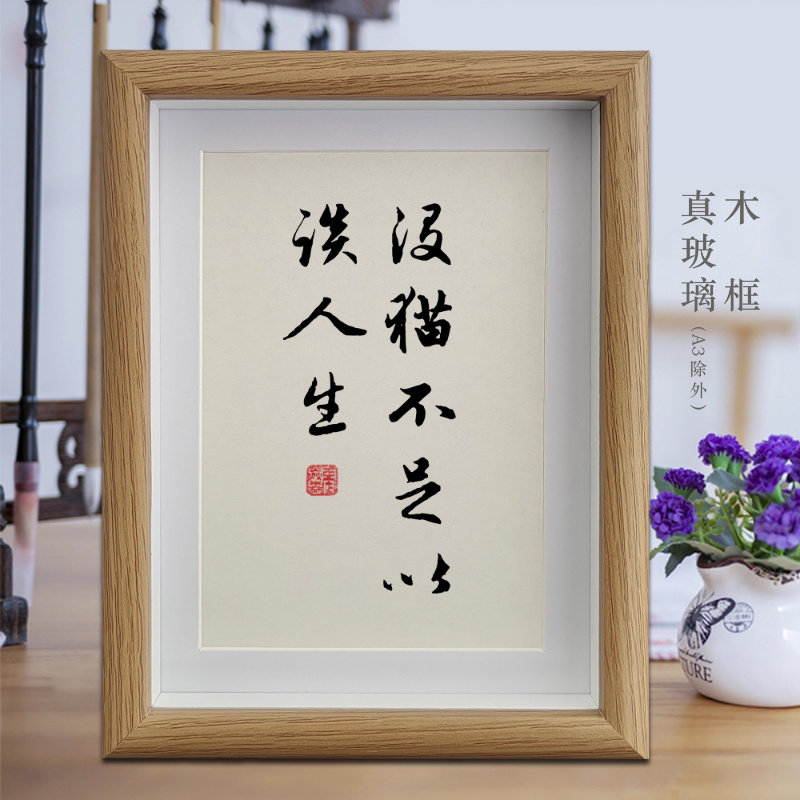 没猫不足以
谈人生
木框
真玻璃
(A3除外)
TURE